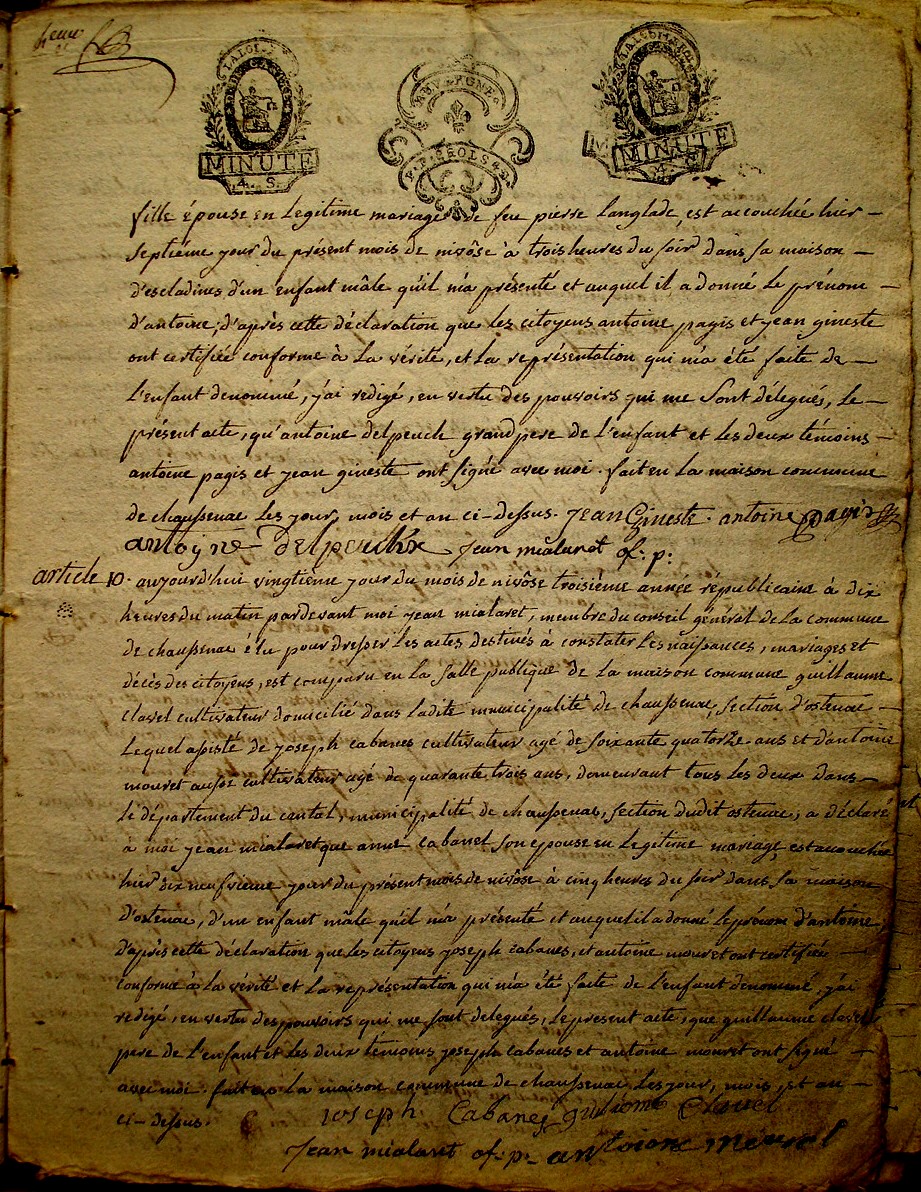 LA LOI
MINUTE
4. S.
AUVERGNE
LA LOI
MINUTE
4. S.
fille épouse en legitime mariage de feu pierre Langlade, est accouchée hier –
septiéme jour du présent mois de nivôse à trois heures du soir dans sa maison –
d'escladines d'un enfant mâle qu'il m'a présenté et auquel il a donné le prénom –
d'antoine; d'après cette déclaration que les citoyens antoine pagis et jean gineste
ont certifiée conforme à la vérité, et la représentation qui m'a été faite de –
l'enfant denommé, j'ai redigé, en vertu des pouvoirs qui me sont délegués, le –
présent acte, qu'antoine delpeuch grand pere de l'enfant et les deux témoins –
antoine pagis et jean gineste ont signé avec moi. fait en la maison commune
de chaussenac les jour, mois et an ci-dessus. Jean Gineste. antoine Pagis
antoyne delpeuch Jean mialaret of. p.
article 10. aujourd'hui vingtieme jour du mois de nivôse troisiéme année républicaine à dix
heures du matin pardevant moi jean mialaret, membre du conseil général de la commune
de chaussenac élu pour dresser les actes destinés à constater les naissances, mariages et
décès des citoyens, est comparu en la salle publique de la maison commune guillaume
clavel cultivateur domicilié dans ladite municipalité de chaussenac, section d'ostenac –
lequel assisté de joseph cabanes cultivateur agé de soixante quatorze ans et d'antoine
mouret aussi cultivateur agé de quarante trois ans, demeurant tous les deux dans –
le département du cantal, municipalité de chaussenac, section dudit ostenac, a déclaré
à moi jean mialaret que anne cabanel son épouse en legitime mariage, est accouchée
hier dix neufvieme jour du présent mois de nivôse à cinq heures du soir dans sa maison
d'ostenac, d'un enfant mâle qu'il m'a présenté et auquel il a donné le prénom d'antoine
d'après cette déclaration que les citoyens joseph cabanes, et antoine mouret ont certifiée
conforme à la vérité et la représentation qui m'a été faite de l'enfant denommé, j'ai
redigé, en vertu des pouvoirs qui me sont delegués, le present acte, que guillaume clavel
pere de l'enfant et les deux temoins joseph cabanes et antoine mouret ont signé –
avec moi. fait en la maison commune de chaussenac les jour, mois, et an –
ci-dessus. joseph Cabanes guiliome Clavel
Jean mialaret of. p. antoine mouret